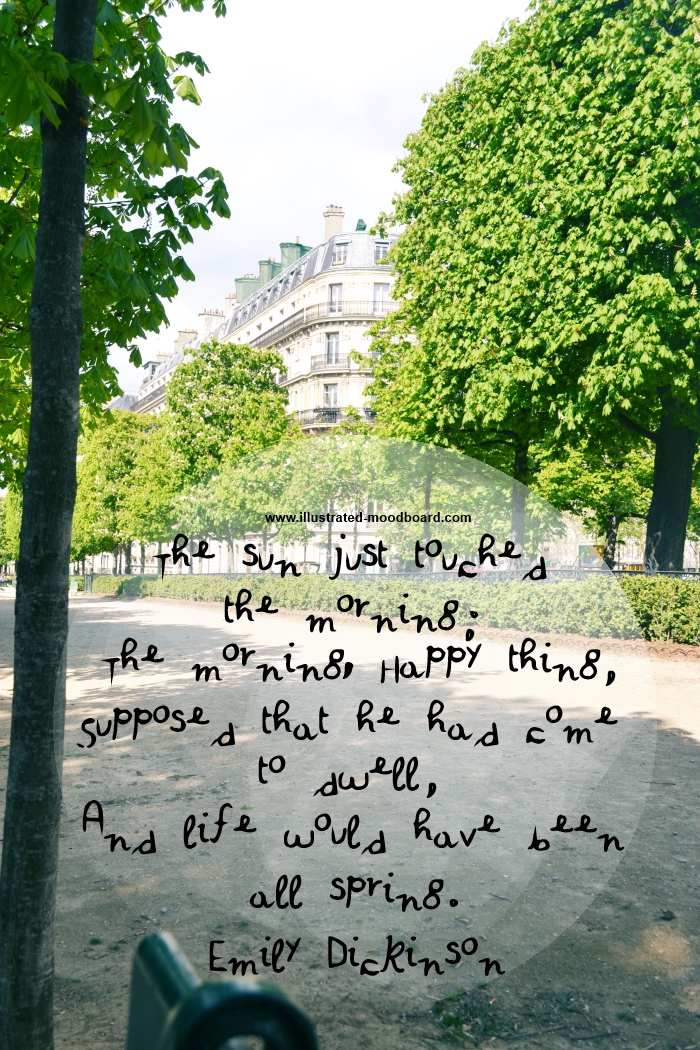 www.illustrated-moodboard.com
The sun just touched
the morning;
The morning, Happy thing,
supposed that he had come
to dwell,
And life would have been
all spring.
Emily Dickinson